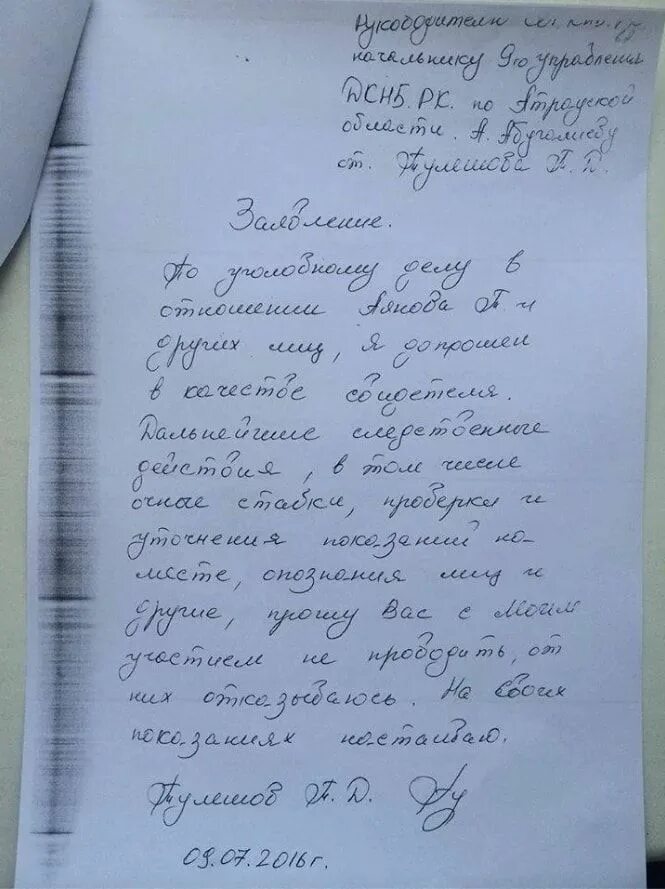 Руководителю
начальнику 9го управления
ДСНБ.РК. по Атрауской
области. А. Абугалиеву
от. Тулешова Т. Д.
Заявление.
По уголовному делу в
отношении Аянова Т. и
других лиц, я допрошен
в качестве свидетеля.
Дальнейшие следственные
действия, в том числе
очные ставки, проверка и
уточнения показаний на-
месте, опознания лиц и
другие, прошу Вас с моим
участием не проводить, от
них отказываюсь. На своих
показаниях настаиваю.
Тулешов Т. Д.
09.07.2016г.